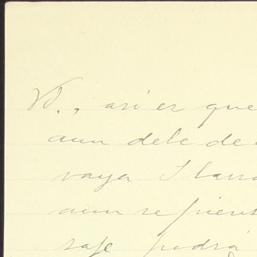 Vd., asi es que
aun debe de
vaya
aun se piens
saje podrá